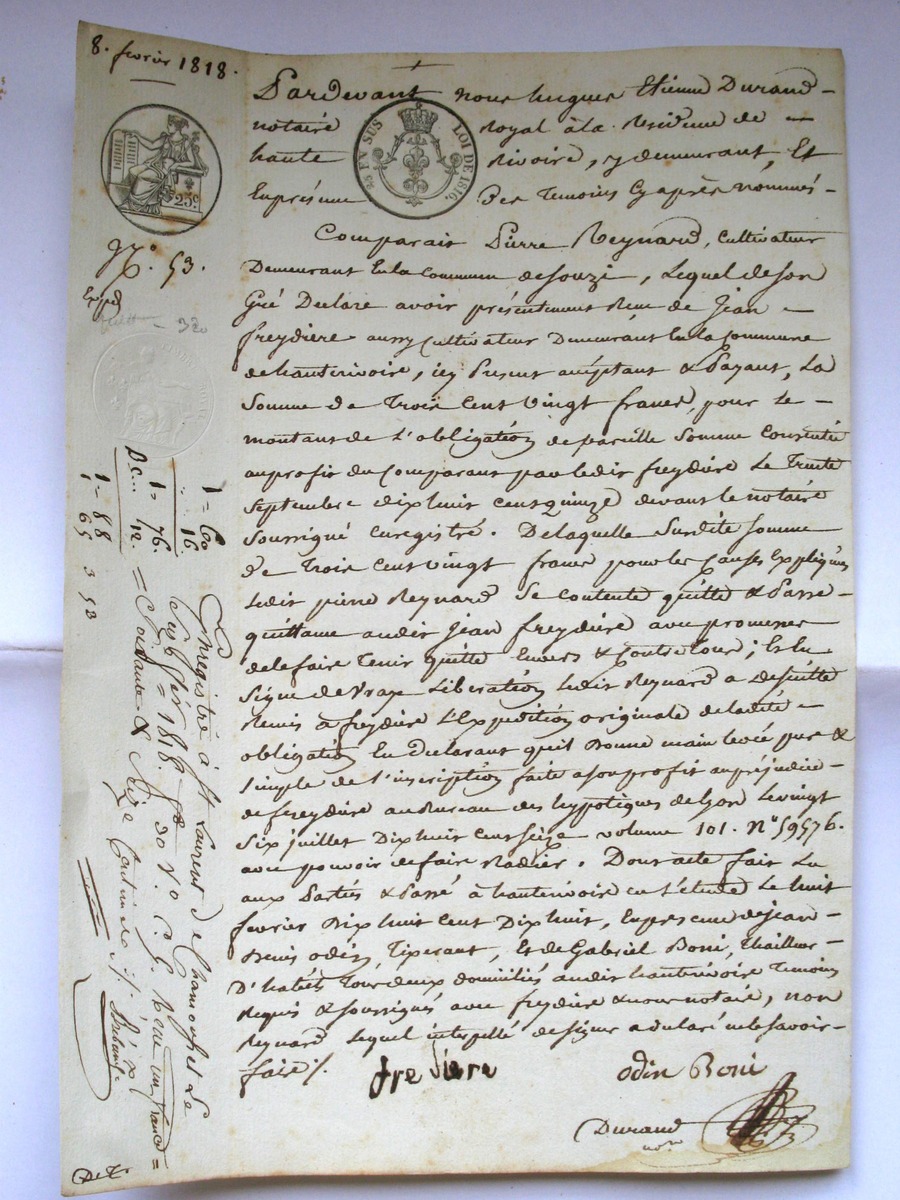 8. fevrier 1818.
Pardevant nous hugues Etienne Durand
notaire royal à la Residence de
haute Rivoire, y demeurant, Et
En présence des Temoins Cy après nommés
EN SUS LOI DE 1816.
25 c
N.° 53.
Expd
320
Comparait Pierre Reynard, Cultivateur
Demeurant En la Commune de Souzi, Lequel de Son
Gré Declare avoir présentement Recu de Jean
freydiere aussy Cultivateur Demeurant En la Commune
de hauterivoire, icy Present acceptant & Payant, La
Somme de Trois Cent vingt francs, pour Le
montant de L'obligation de pareille Somme Consentie
au profit du Comparant par ledit freydiere Le Trente
Septembre dix huit cent quinze devant le notaire
Soussigné Enregistré. De laquelle Susdite Somme
de Trois Cent vingt francs pour les Causes Expliquées
Ledit pierre Reynard Se Contente quitte & Passe
quittance audit Jean freydiere avec promesse
de le faire Tenir quitte Envers & Contre tous; Et En
Signe de vraye Liberation Ledit Reynard a de Suitte
Remis à freydiere L'Expedition originale de ladite
obligation En Declarant qu'il Donne main levée pure &
Simple de L'inscription faite a Son profit au préjudice
de freydiere au Bureau des hypotéques de Lyon Le vingt
Six juillet Dix huit Cent Seize volume 101. N° 59576.
avec pouvoir de faire Radier. Dont acte fait Lu
aux Parties & Passé à hauterivoire En L'étude Le huit
fevrier Dix huit Cent Dix huit, En presence de Jean
Denis odin, Tixerant, Et de Gabriel Boni, Tailleur
D'habits Tous deux domiciliés audit hauterivoire Temoins
Requis & Soussignés avec freydiere & nous notaire, non
Reynard Lequel interpellé de Signer a declaré ne le Savoir
faire /.
frediere odin Boni
Durand
nore
1 = 60
16
1 = 76.
Dc... 12.
1 = 88
1 65 3 53
Enregistré à St Laurent de Chamousset Le
Seize fév. 1818. fo 30 V.o C. 5. Reçu un franc
Soixante & Seize Centimes